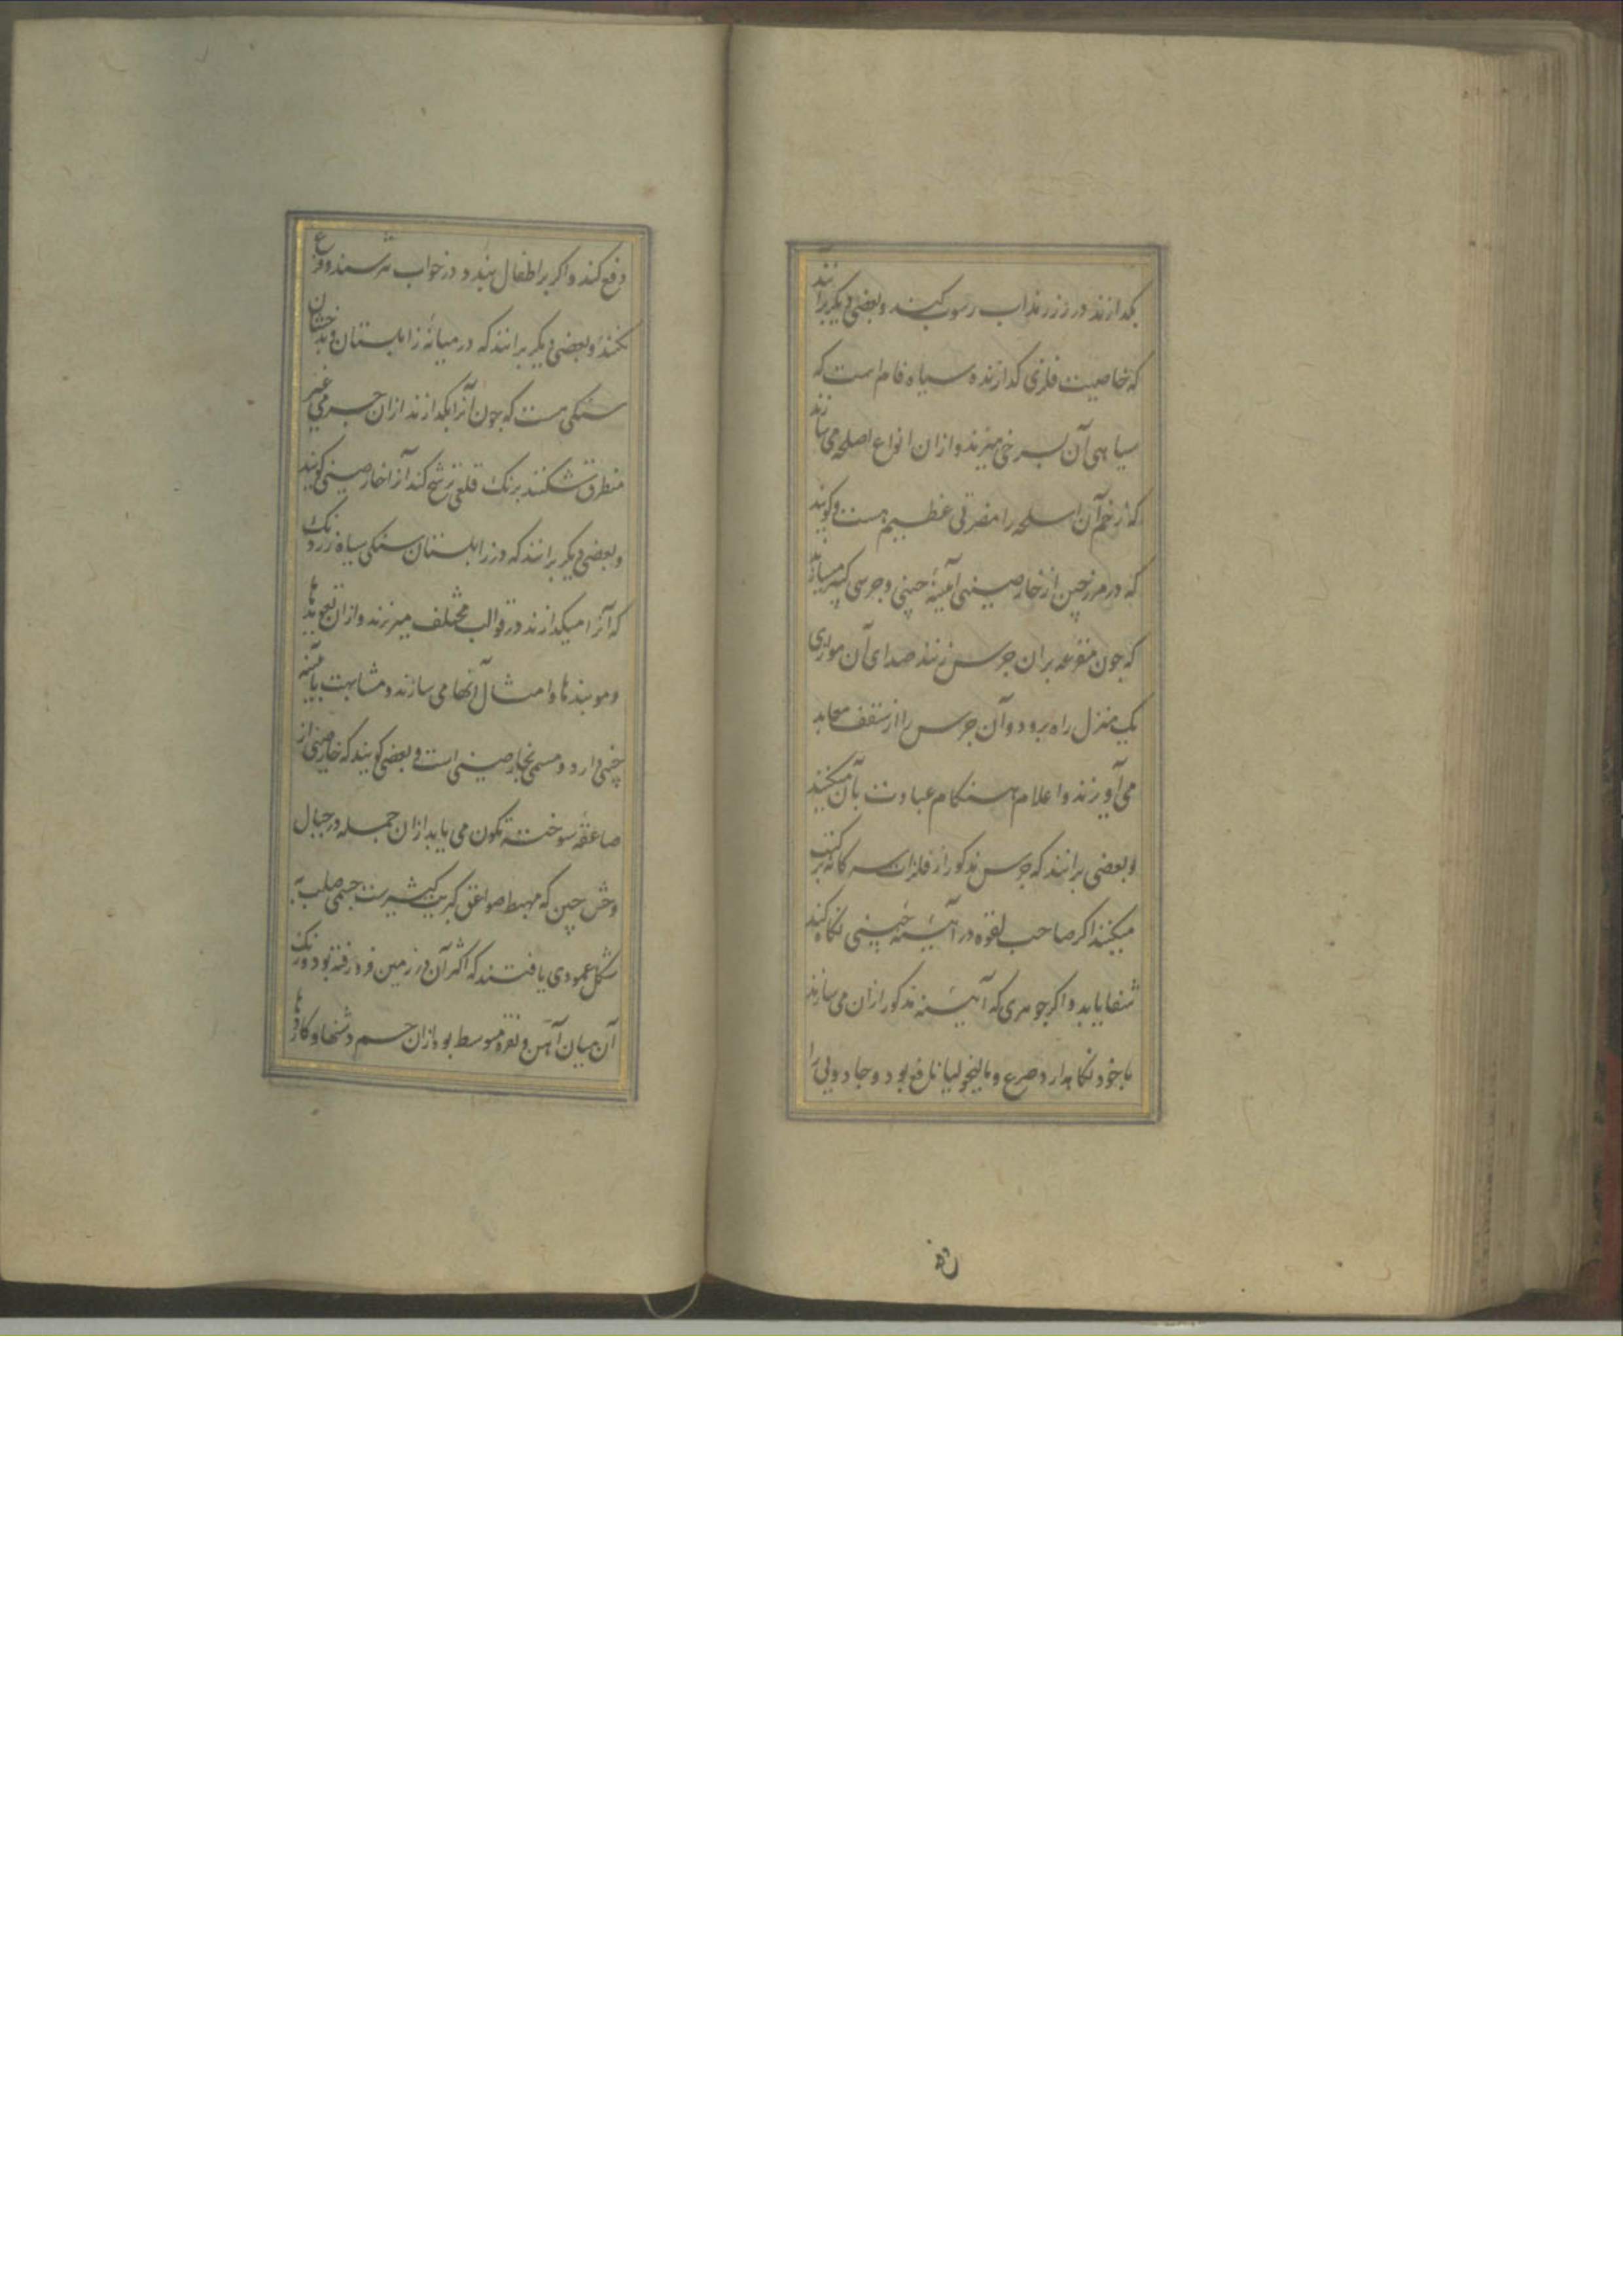 بکدازند در زر مذاب رسوب کنند و بعضی دیکر برانند
که خاصیت فلزی کدازنده سیاه فام است که
سیاهی آن بسرخی میزند و ازان انواع اصلحه می سازند
که زخم آن اسلحه را مضرتی عظیم هست و کویند
که در مرز چین از خارصینی آیینهٔ چینی و جرسی کبیر میسازند
که چون مقرعه بران جرس زنند صدای آن موازی
یک منزل راه برود و آن جرس را از سقف معابد
می آویزند و اعلام هنکام عبادت بآن میکنند
و بعضی برانند که جرس مذکور از فلزات سه کانه ترکیب
میکنند اکر صاحب لقوه در آیینه چینی نکاه کند
شفا یابد و اکر جوهری که آیینه مذکور ازان می سازند
با خود نکاه دارد صرع و مالیخولیا نافع بود و جادویی را
دفع کند و اکر بر اطفال بندد در خواب نترسند و فزع
نکنند و بعضی دیکر برانند که در میانهٔ زابلستان و بدخشان
سنکی هست که چون آنرا بکدازند ازان جرمی غیر
منطرق شکننده برنک قلعی ترشح کند آنرا خارصینی کویند
و بعضی دیکر برانند که در زابلستان سنکی سیاه زرد رنک
که آنرا میکدازند در قوالب مختلف میریزند و ازان تعویذها
و موبندها و امثال آنها می سازند و مشابهت بآیینه
چینی دارد و مسمی بخارصینی است و بعضی کویند که خارصینی از
صاعقهٔ سوخته تکون می یابد ازان جمله در جبال
وخش چین که مهبط صواعق کبریت کثیرست جسمی صلب به
شکل عمودی یافتند که اکثر آن در زمین فرو رفته بود و رنک
آن میان آهن و نقره متوسط بود ازان جسم دشنها و کاردها